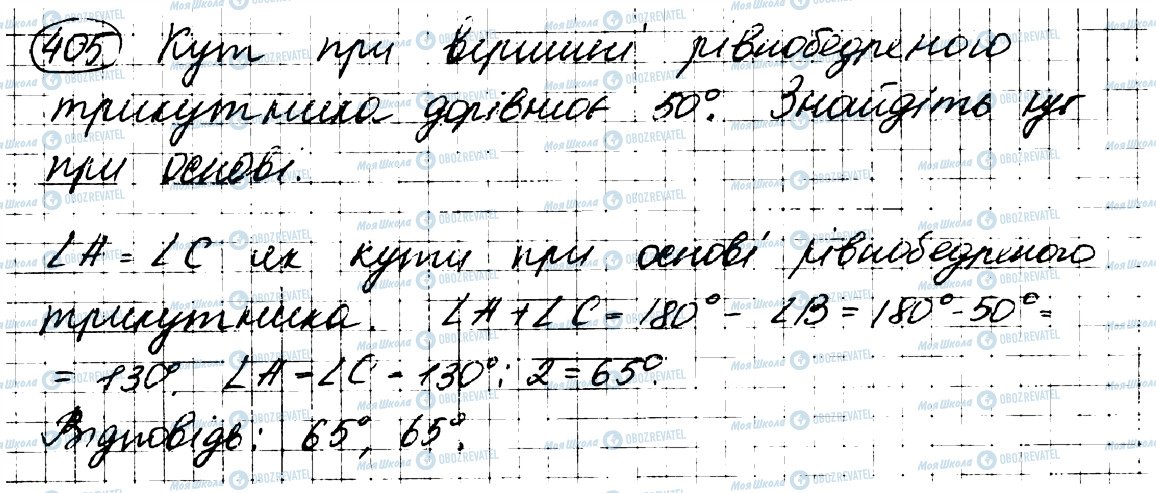 405 Кут при вершині рівнобедреного
трикутника дорівнює 50°. Знайдіть кут
при основі.
∠A = ∠C як кути при основі рівнобедреного
трикутника. ∠A + ∠C = 180° - ∠B = 180° - 50° =
= 130°. ∠A = ∠C = 130° : 2 = 65°.
Відповідь: 65°, 65°.